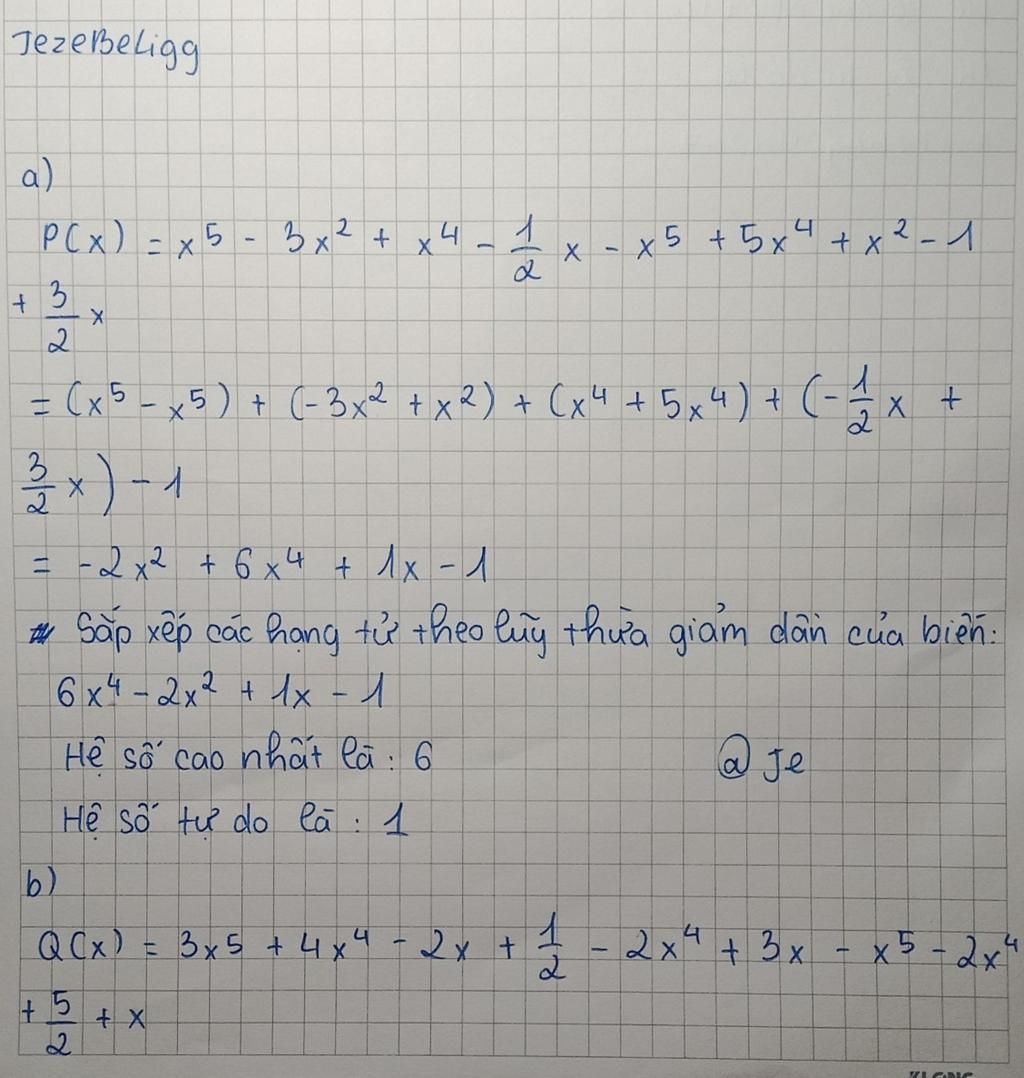 JezeBeligg
a)
P(x) = x⁵ - 3x² + x⁴ - 1/2 x - x⁵ + 5x⁴ + x² - 1
+ 3/2 x
= (x⁵ - x⁵) + (-3x² + x²) + (x⁴ + 5x⁴) + (- 1/2 x +
3/2 x) - 1
= -2x² + 6x⁴ + 1x - 1
Sắp xếp các hạng tử theo lũy thừa giảm dần của biến:
6x⁴ - 2x² + 1x - 1
Hệ số cao nhất là: 6
@ Je
Hệ số tự do là: 1
b)
Q(x) = 3x⁵ + 4x⁴ - 2x + 1/2 - 2x⁴ + 3x - x⁵ - 2x⁴
+ 5/2 + x